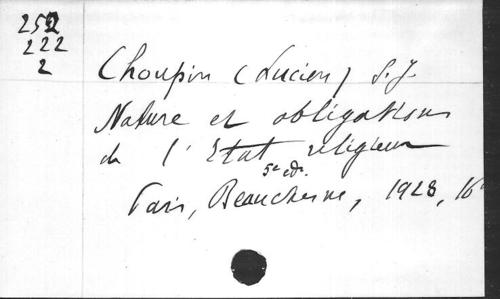 252
222
2
Choupin (Lucien) S.J.
Nature et obligations
de l'Etat religieux
5e ed.
Paris, Beauchesne, 1928, 16°